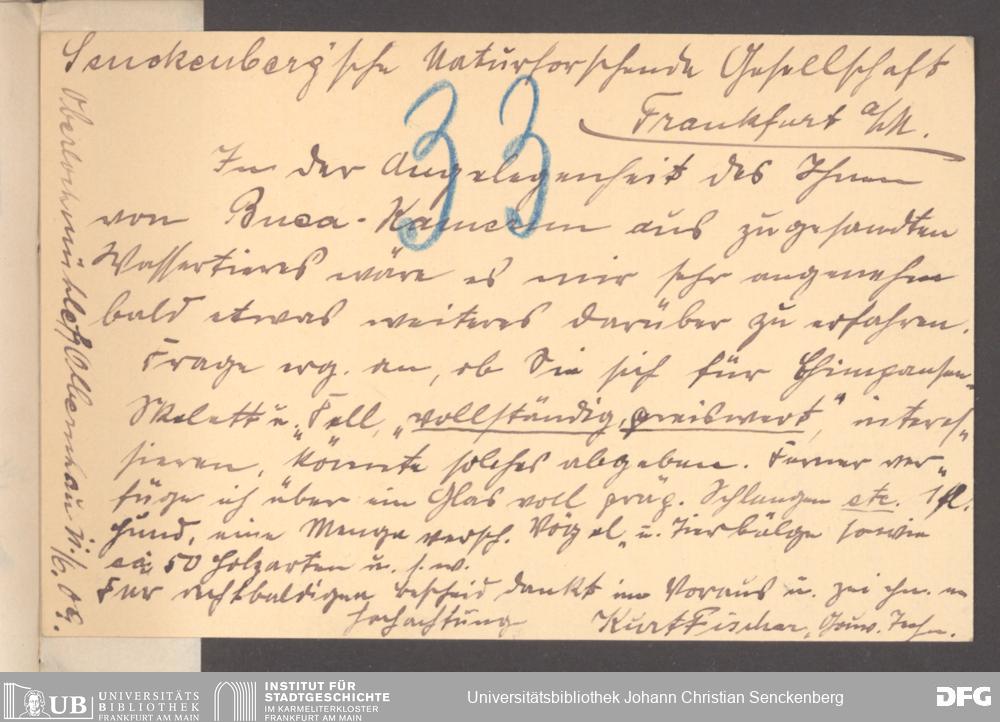 Senckenberg'sche Naturforschende Gesellschaft
Frankfurt a/M.
33
In der Angelegenheit des Ihnen
von Buea-Kamerun aus zugesandten
Wassertieres wäre es mir sehr angenehm
bald etwas weiteres darüber zu erfahren.
Frage erg. an, ob Sie sich für Chimpansen-
Skelett u. Fell, "vollständig, preiswert", interes-
sieren, könnte solches abgeben. Ferner ver-
füge ich über ein Glas voll präp. Schlangen etc. 1 fl.
Hund, eine Menge versch. Vögel- u. Tierbälge sowie
ca: 50 Holzarten u. s. w.
Für recht baldigen Bescheid dankt im Voraus u. zeichn. en
Hochachtung Kurt Fischer, Gouv. Techn.
Olbernhau 11./6. 09.
UB UNIVERSITÄTS
BIBLIOTHEK
FRANKFURT AM MAIN
INSTITUT FÜR
STADTGESCHICHTE
IM KARMELITERKLOSTER
FRANKFURT AM MAIN
Universitätsbibliothek Johann Christian Senckenberg
DFG